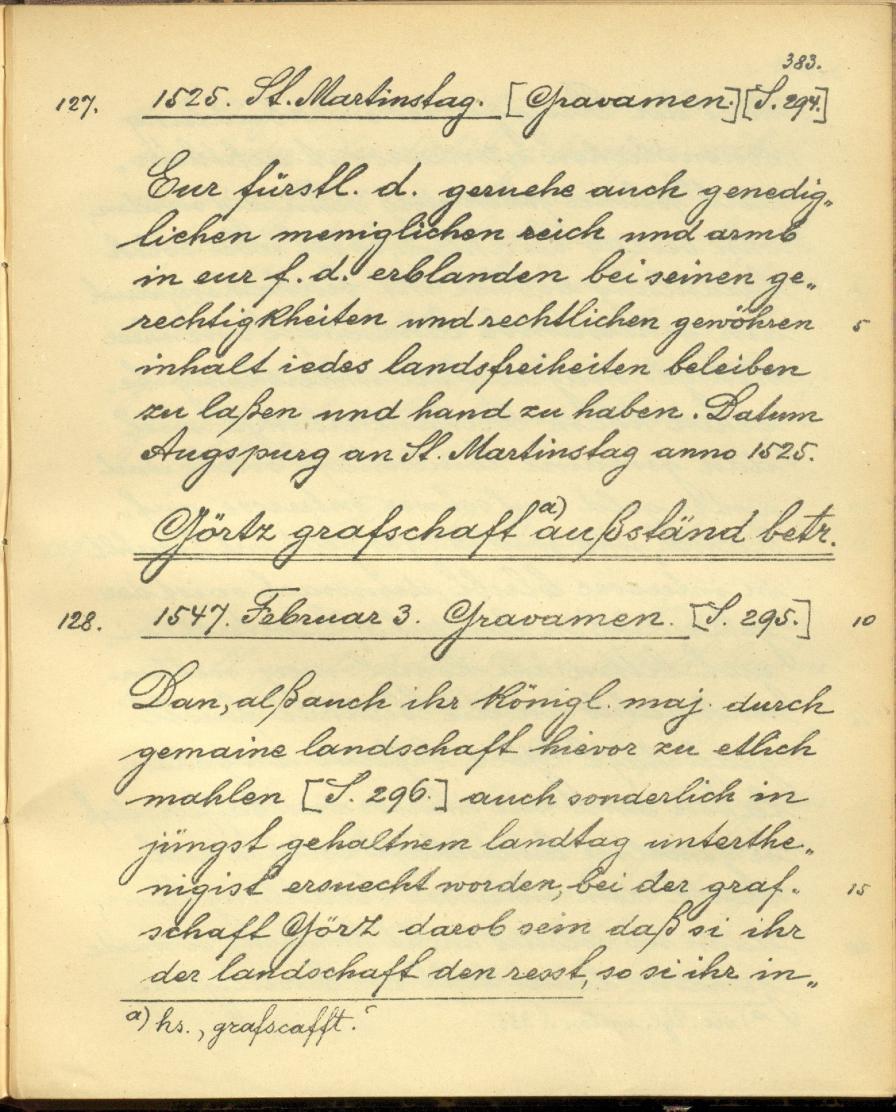 383.
127. 1525. St. Martinstag. [Gravamen.] [S. 294.]
Eur fürstl. d. geruehe auch genedig„
lichen meniglichen reich und armb
in eur f. d. erblanden bei seinen ge„
rechtigkheiten und rechtlichen gewöhren 5
inhalt iedes landsfreiheiten beleiben
zu laßen und hand zu haben. Datum
Augspurg an St. Martinstag anno 1525.
Görtz grafschaft a) außständ betr.
128. 1547. Februar 3. Gravamen. [S. 295.] 10
Dan, alß auch ihr königl. maj. durch
gemaine landschaft hievor zu etlich
mahlen [S. 296.] auch sonderlich in
jüngst gehaltnem landtag unterthe„
nigist ersuecht worden, bei der graf„ 15
schaft Görz darob sein daß si ihr
der landschaft den resst, so si ihr in„
a) hs. „grafscafft."